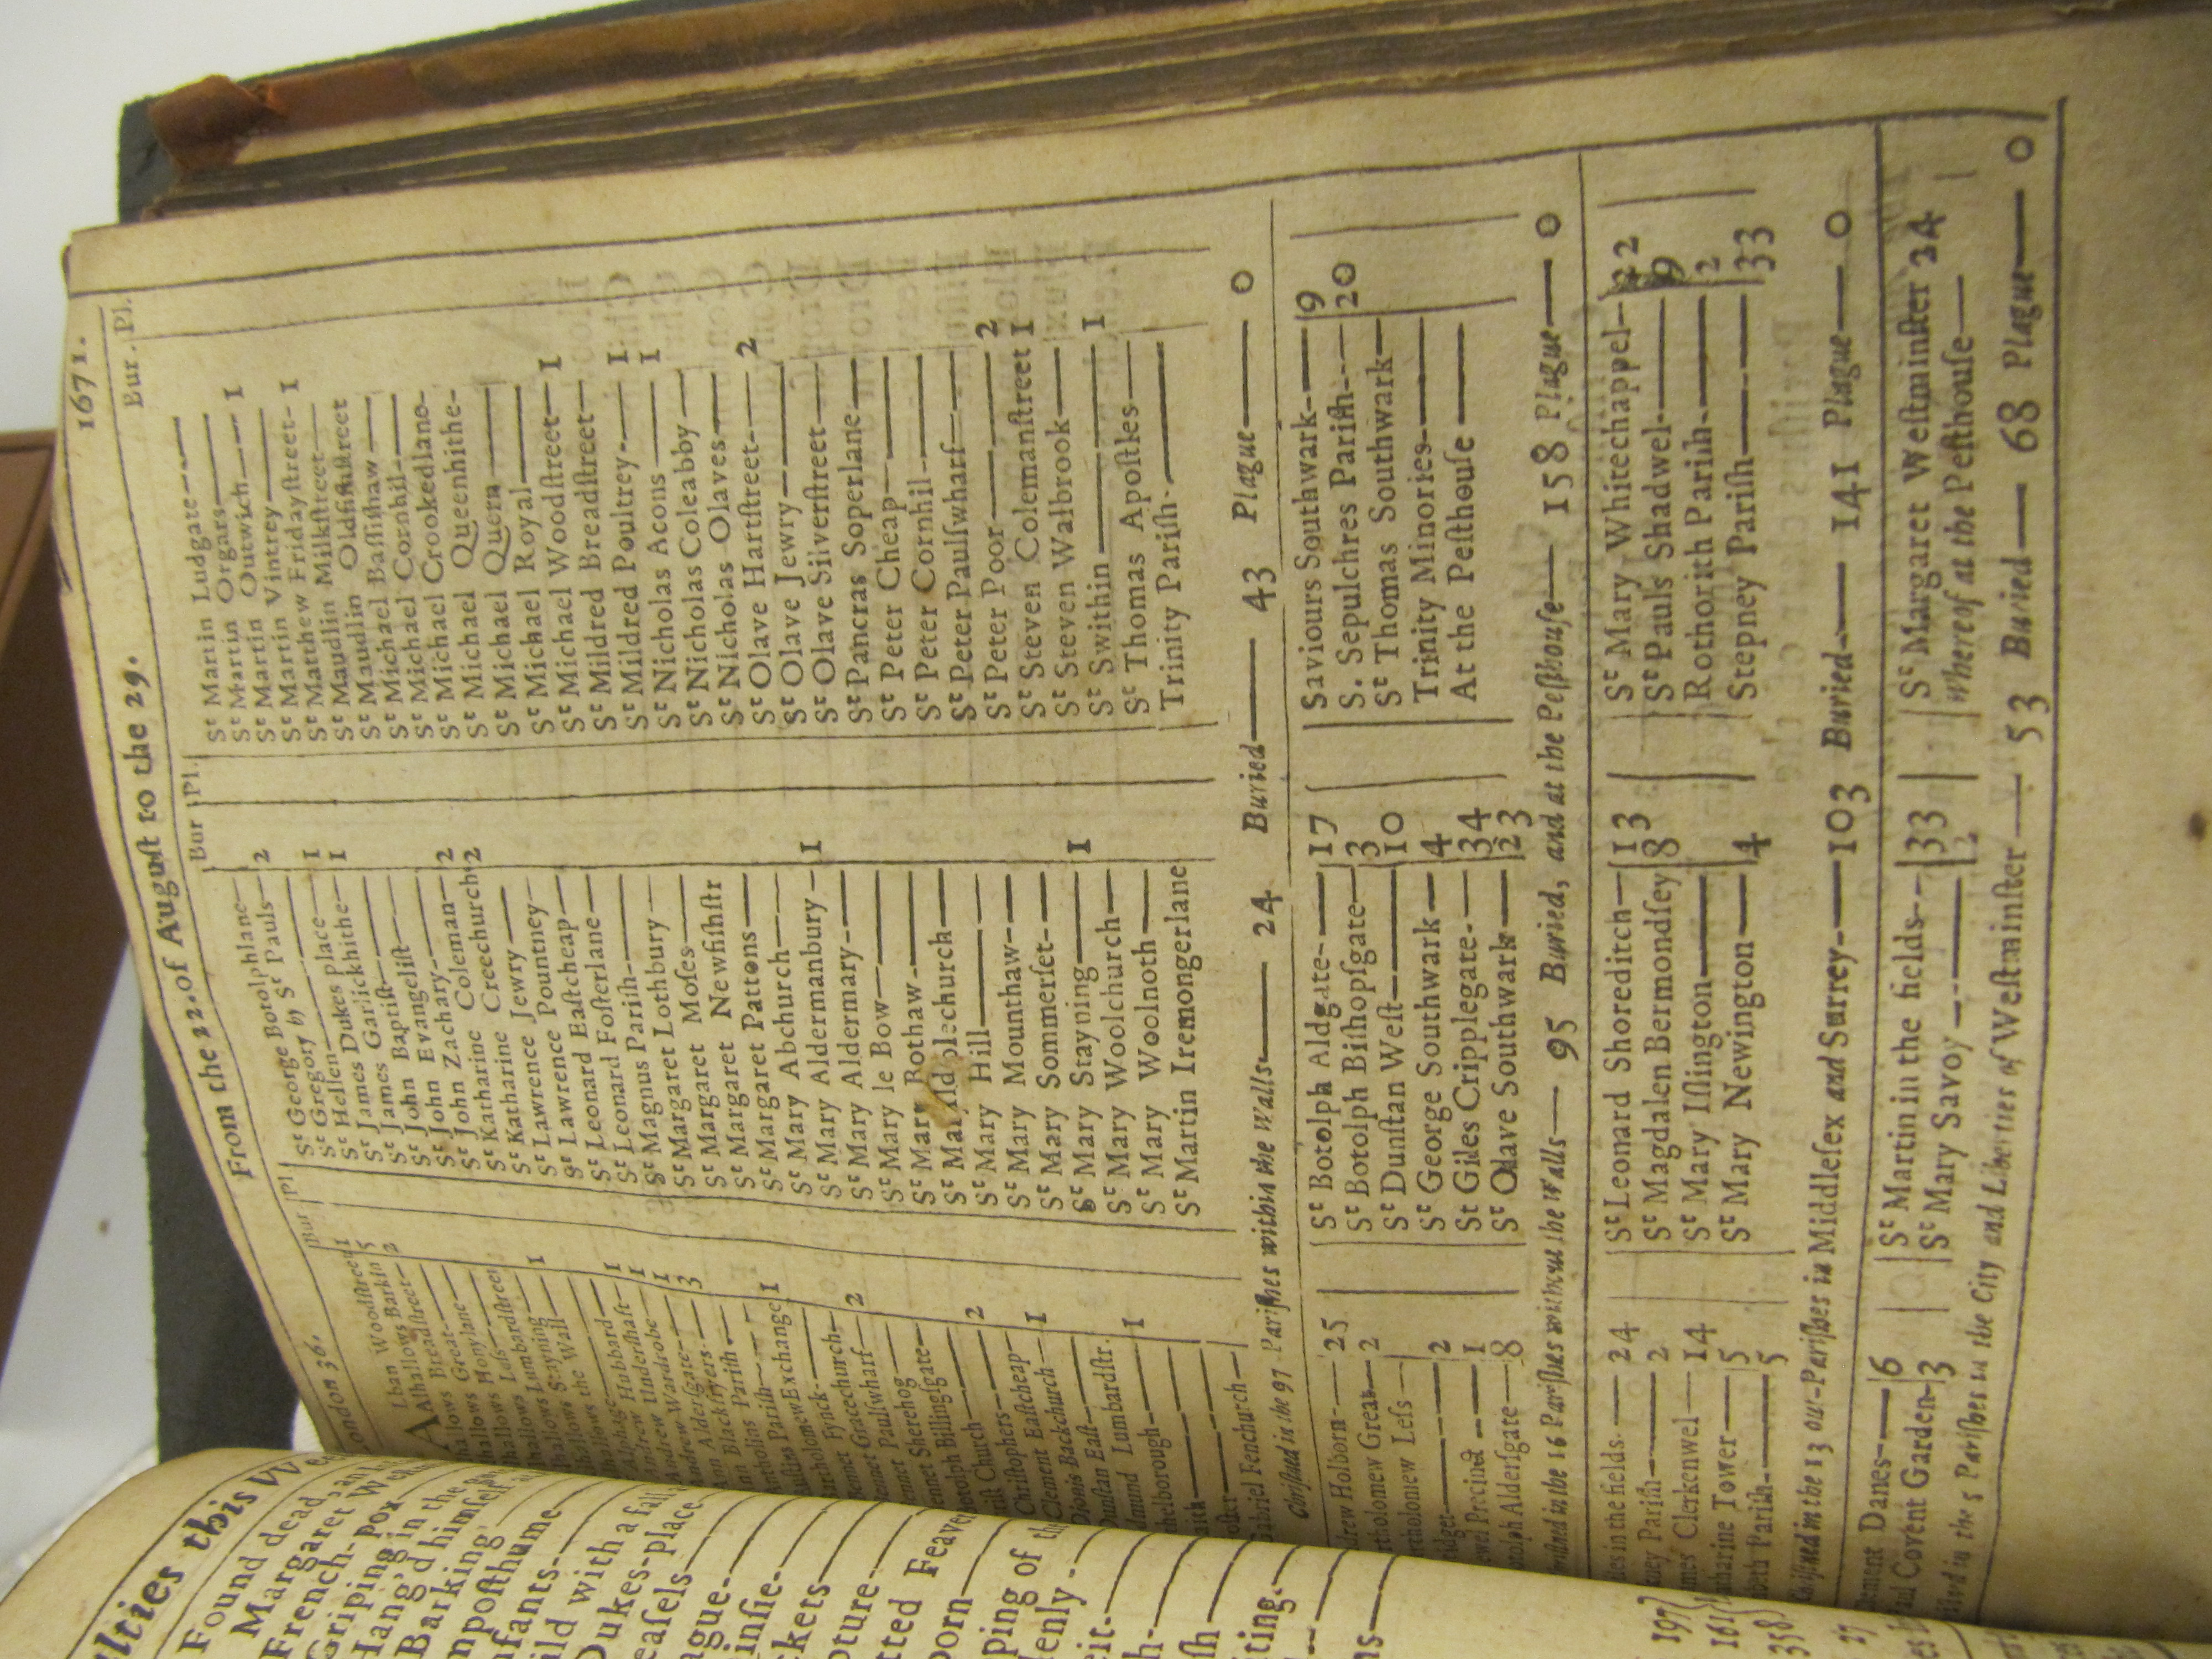 London 36. From the 22. of August to the 29. 1671.
Bur Pl
Bur Pl.
Bur. Pl.
Lban Woodſtreet 1
Alhallows Barkin 5
Alhallows Breadſtreet— 2
hallows Great—
hallows Honylane—
hallows Leſs—
hallows Lumbardſtreet
hallows Stayning— 1
hallows the Wall—
Alphage— 1
Andrew Hubbard— 1
Andrew Underſhaft— 1
Andrew Wardrobe— 3
Ann Alderſgate—
Ann Blackfryers—
Antholins Pariſh—
Auſtins Pariſh—
Bartholomew Exchange 1
Bennet Fynck—
Bennet Gracechurch— 2
Bennet Paulſwharf—
Bennet Sherehog—
Botolph Billingſgate—
Chriſt Church— 2
Chriſtophers—
Clement Eaſtcheap— 1
Dionis Backchurch—
Dunſtan Eaſt—
Edmund Lumbardſtr. 1
thelborough—
aith—
oſter—
Gabriel Fenchurch—
St George Botolphlane—
St Gregory by St Pauls— 2
St Hellen—
St James Dukes place— 1
St James Garlickhithe— 1
St John Baptiſt—
St John Evangeliſt—
St John Zachary—
St Katharine Coleman— 2
St Katharine Creechurch 2
St Katharine Jewry—
St Lawrence Pountney—
St Lawrence Eaſtcheap—
St Leonard Foſterlane—
St Leonard Pariſh—
St Magnus Pariſh—
St Margaret Lothbury—
St Margaret Moſes—
St Margaret Newfiſhſtr
St Margaret Pattons—
St Mary Abchurch—
St Mary Aldermanbury— 1
St Mary Aldermary—
St Mary le Bow—
St Mary Bothaw—
St Mary Colechurch—
St Mary Hill—
St Mary Mounthaw—
St Mary Sommerſet—
St Mary Stayning— 1
St Mary Woolchurch—
St Mary Woolnoth—
St Martin Iremongerlane
St Martin Ludgate—
St Martin Orgars—
St Martin Outwich— 1
St Martin Vintrey—
St Matthew Fridayſtreet- 1
St Maudlin Milkſtreet—
St Maudlin Oldfiſhſtreet
St Michael Baſſiſhaw—
St Michael Cornhil—
St Michael Crookedlane-
St Michael Queenhithe-
St Michael Quern—
St Michael Royal—
St Michael Woodſtreet— 1
St Mildred Breadſtreet—
St Mildred Poultrey— 1
St Nicholas Acons— 1
St Nicholas Coleabby—
St Nicholas Olaves—
St Olave Hartſtreet— 2
St Olave Jewry—
St Olave Silverſtreet—
St Pancras Soperlane—
St Peter Cheap—
St Peter Cornhil—
St Peter Paulſwharf—
St Peter Poor— 2
St Steven Colemanſtreet 1
St Steven Walbrook—
St Swithin— 1
St Thomas Apoſtles—
Trinity Pariſh—
Chriſtned in the 97 Pariſhes within the Walls— 24 Buried— 43 Plague— 0
drew Holborn— 25
rtholomew Great— 2
rtholomew Leſs—
ridget— 2
ewel Precinct— 1
otolph Alderſgate— 8
St Botolph Aldgate— 17
St Botolph Biſhopſgate— 3
St Dunſtan Weſt— 10
St George Southwark— 4
St Giles Cripplegate— 34
St Olave Southwark— 23
Saviours Southwark— 9
S. Sepulchres Pariſh— 20
St Thomas Southwark—
Trinity Minories—
At the Peſthouſe—
Chriſtned in the 16 Pariſhes without the Walls— 95 Buried, and at the Peſthouſe— 158 Plague— 0
iles in the fields— 24
kney Pariſh— 2
mes Clerkenwel— 14
atharine Tower— 5
beth Pariſh— 5
St Leonard Shoreditch— 13
St Magdalen Bermondſey 8
St Mary Iſlington—
St Mary Newington— 4
St Mary Whitechappel— 22
St Pauls Shadwel— 9
Rothorith Pariſh— 2
Stepney Pariſh— 33
Chriſtned in the 13 out-Pariſhes in Middleſex and Surrey— 103 Buried— 141 Plague— 0
lement Danes— 6
aul Covent Garden- 3
St Martin in the fields— 33
St Mary Savoy— 2
St Margaret Weſtminſter 24
whereof at the Peſthouſe—
iſtned in the 5 Pariſhes in the City and Liberties of Weſtminſter— 53 Buried— 68 Plague— 0
lties this W
Found dead, an
Margaret We
French-pox
Griping in the
Hang'd himſelf
Barking
mpoſthume
nfants—
ild with a fall
Dukes-place
eaſels—
ague—
inſie—
ckets—
pture—
tted Feaver
orn—
ping of th
denly—
eit—
h—
ſh—
iting—
ns—
197
161
358
27